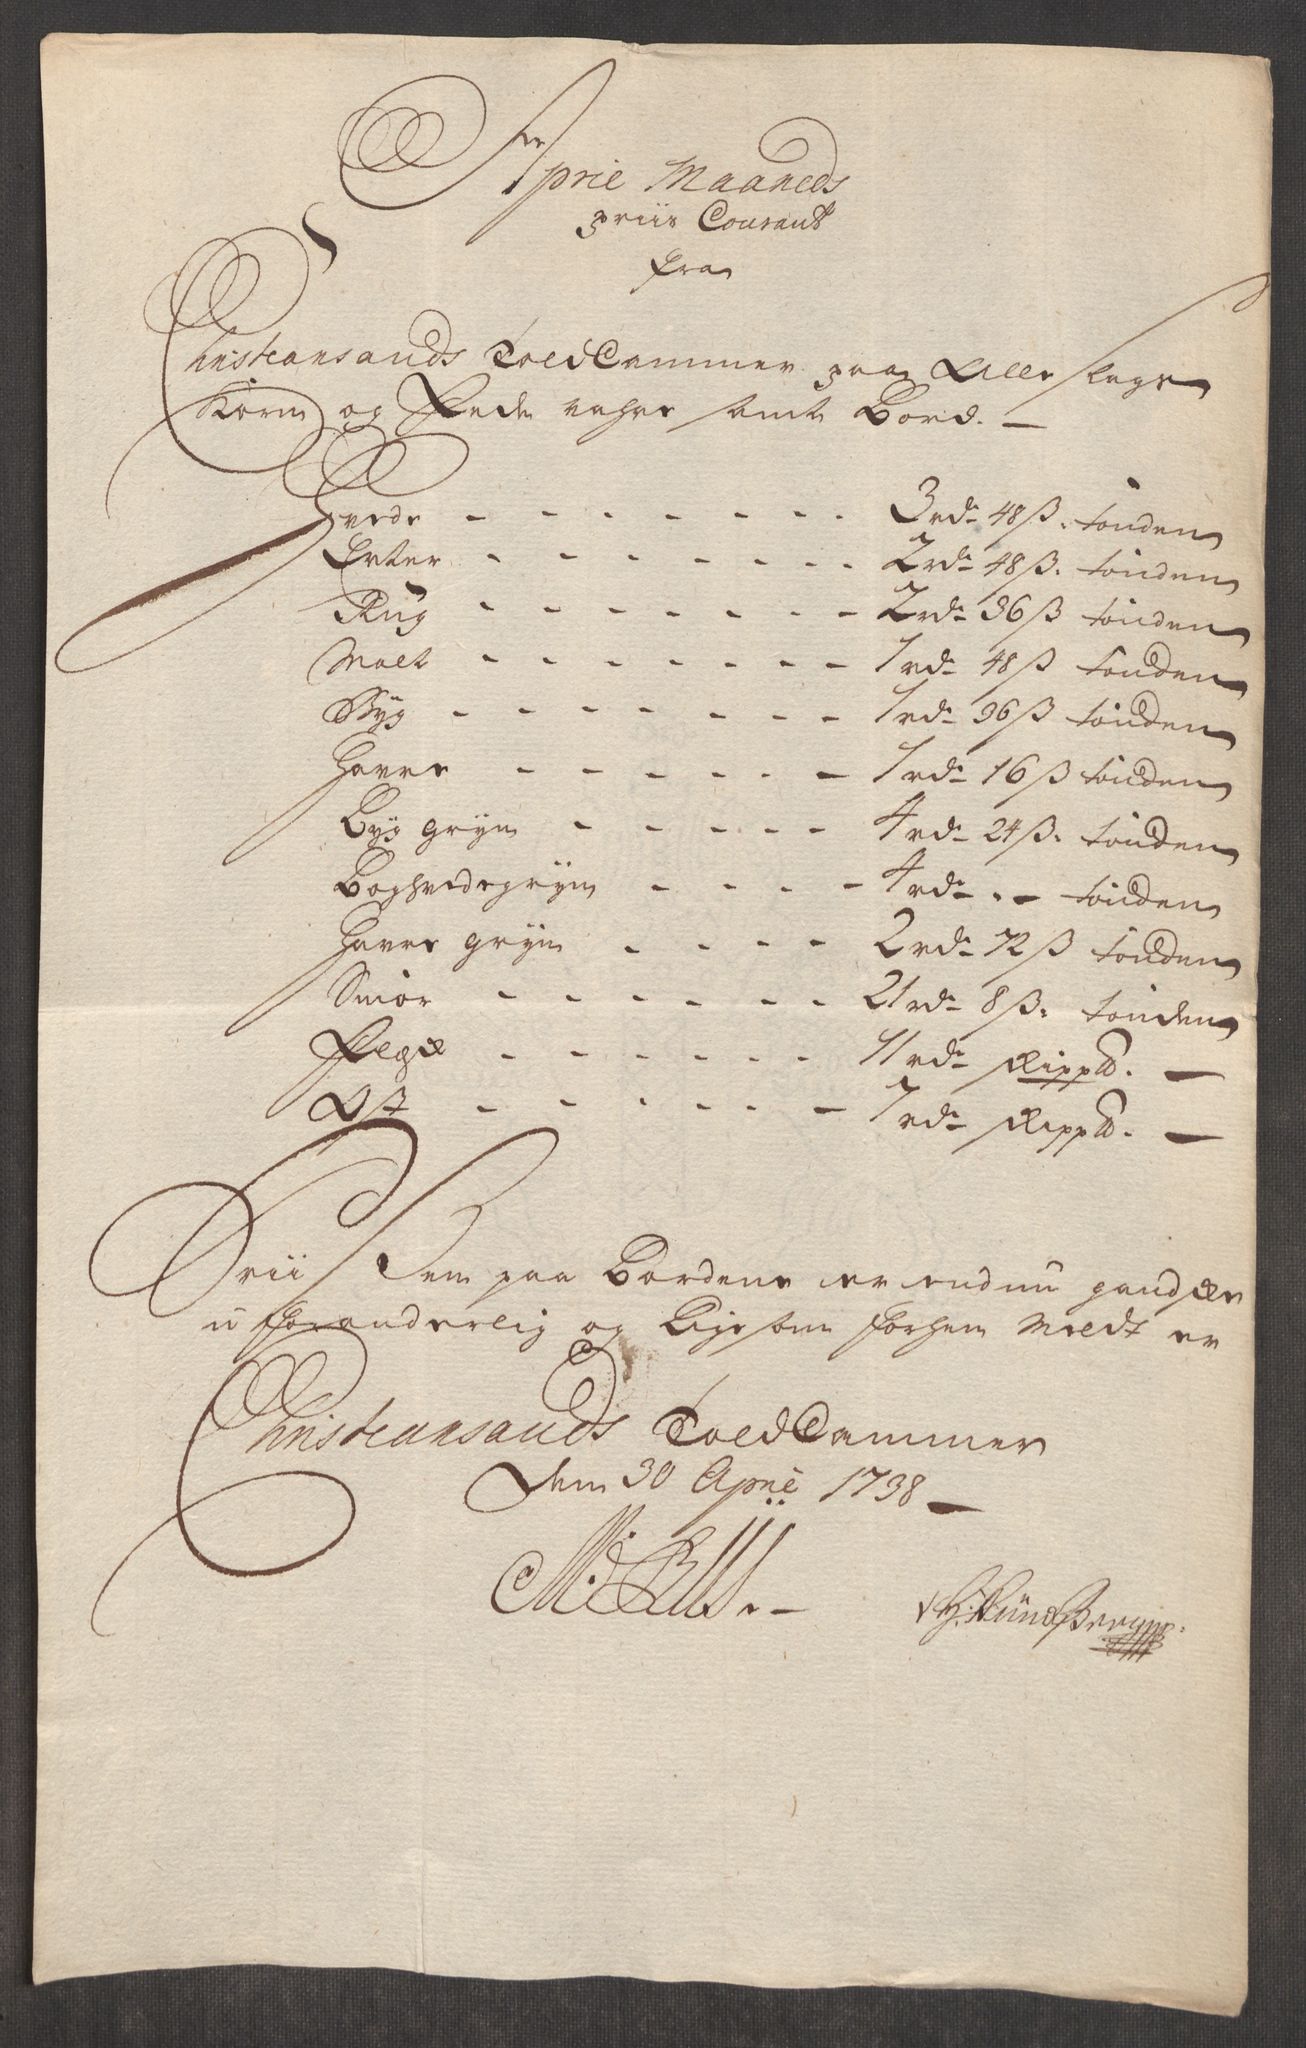 April Maaneds
priis Courant
fra
Christiansands ToldCammer paa Alle slags
Korn og Fede vahrer samt Bord. —
Hvede - - - - - - - 3 rd. 48 ß. tønden
Erter - - - - - - - 2 rd. 48 ß. tønden
Rug - - - - - - - 2 rd. 36 ß tønden
Malt - - - - - - - 1 rd. 48 ß tønden
Byg - - - - - - - 1 rd. 36 ß tønden
Havre - - - - - - 1 rd. 16 ß tønden
Byg gryn - - - - - 4 rd. 24 ß. tønden
Boghvedegryn - - - - 4 rd. . - tønden
Havre gryn - - - - 2 rd. 72 ß tønden
Smør - - - - - - 21 rd. 8 ß. tønden
Flesk - - - - - - 11 rd. Skippd. —
Ost - - - - - - 7 rd. Skippd. —
Priisen paa Bordene er endnu gandske
uforanderlig og Ligesom forhen Meldt er
Christiansands ToldCammer
den 30 April 1738 —